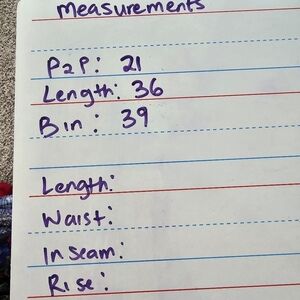 measurements
P2P: 21
Length: 36
Bin: 39
Length:
Waist:
Inseam:
Rise: